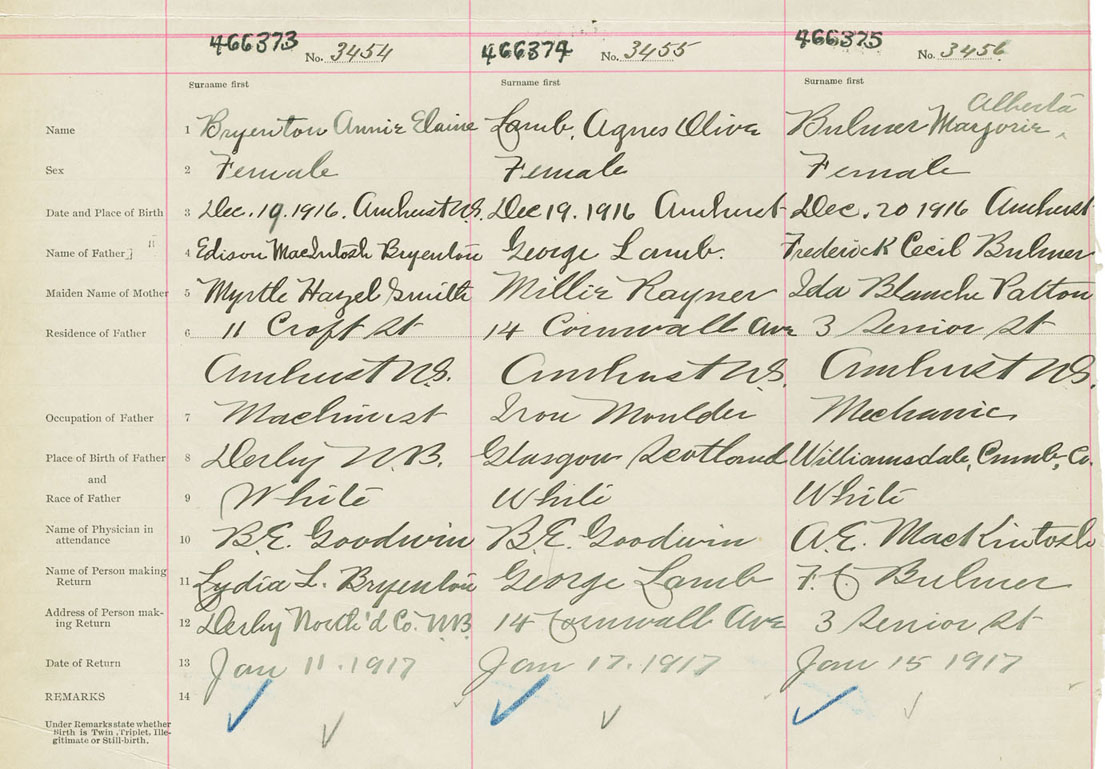 466373 No. 3454 466374 No. 3455 466375 No. 3456
Surname first Surname first Surname first
Alberta
Name 1 Bryenton Annie Elaine Lamb, Agnes Olive Bulmer Marjorie ^
Sex 2 Female Female Female
Date and Place of Birth 3 Dec. 19. 1916. Amherst N.S. Dec 19. 1916 Amherst Dec. 20 1916 Amherst
Name of Father 4 Edison MacIntosh Bryenton George Lamb. Frederick Cecil Bulmer
Maiden Name of Mother 5 Myrtle Hazel Smith Millie Rayner Ida Blanche Patton
Residence of Father 6 11 Croft St 14 Cornwall Ave 3 Senior St
Amherst N.S. Amherst N.S. Amherst N.S.
Occupation of Father 7 Machinist Iron Moulder Mechanic
Place of Birth of Father 8 Derby N.B. Glasgow Scotland Williamsdale, Cumb, Co.
and
Race of Father 9 White White White
Name of Physician in
attendance 10 B.E. Goodwin B.E. Goodwin A.E. MacKintosh
Name of Person making
Return 11 Lydia L. Bryenton George Lamb F. C Bulmer
Address of Person mak-
ing Return 12 Derby North'd Co. N.B 14 Cornwall Ave 3 Senior St
Date of Return 13 Jan 11. 1917 Jan 17. 1917 Jan 15 1917
REMARKS 14
Under Remarks state whether
Birth is Twin, Triplet, Ille-
gitimate or Still-birth.